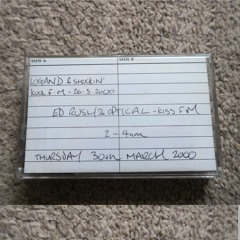 SIDE A SIDE B
LOGAN D & SHOCKIN'
KOOL F.M - 26.3 2000
ED RUSH & OPTICAL - KISS FM
2 - 4am
THURSDAY 30TH MARCH 2000